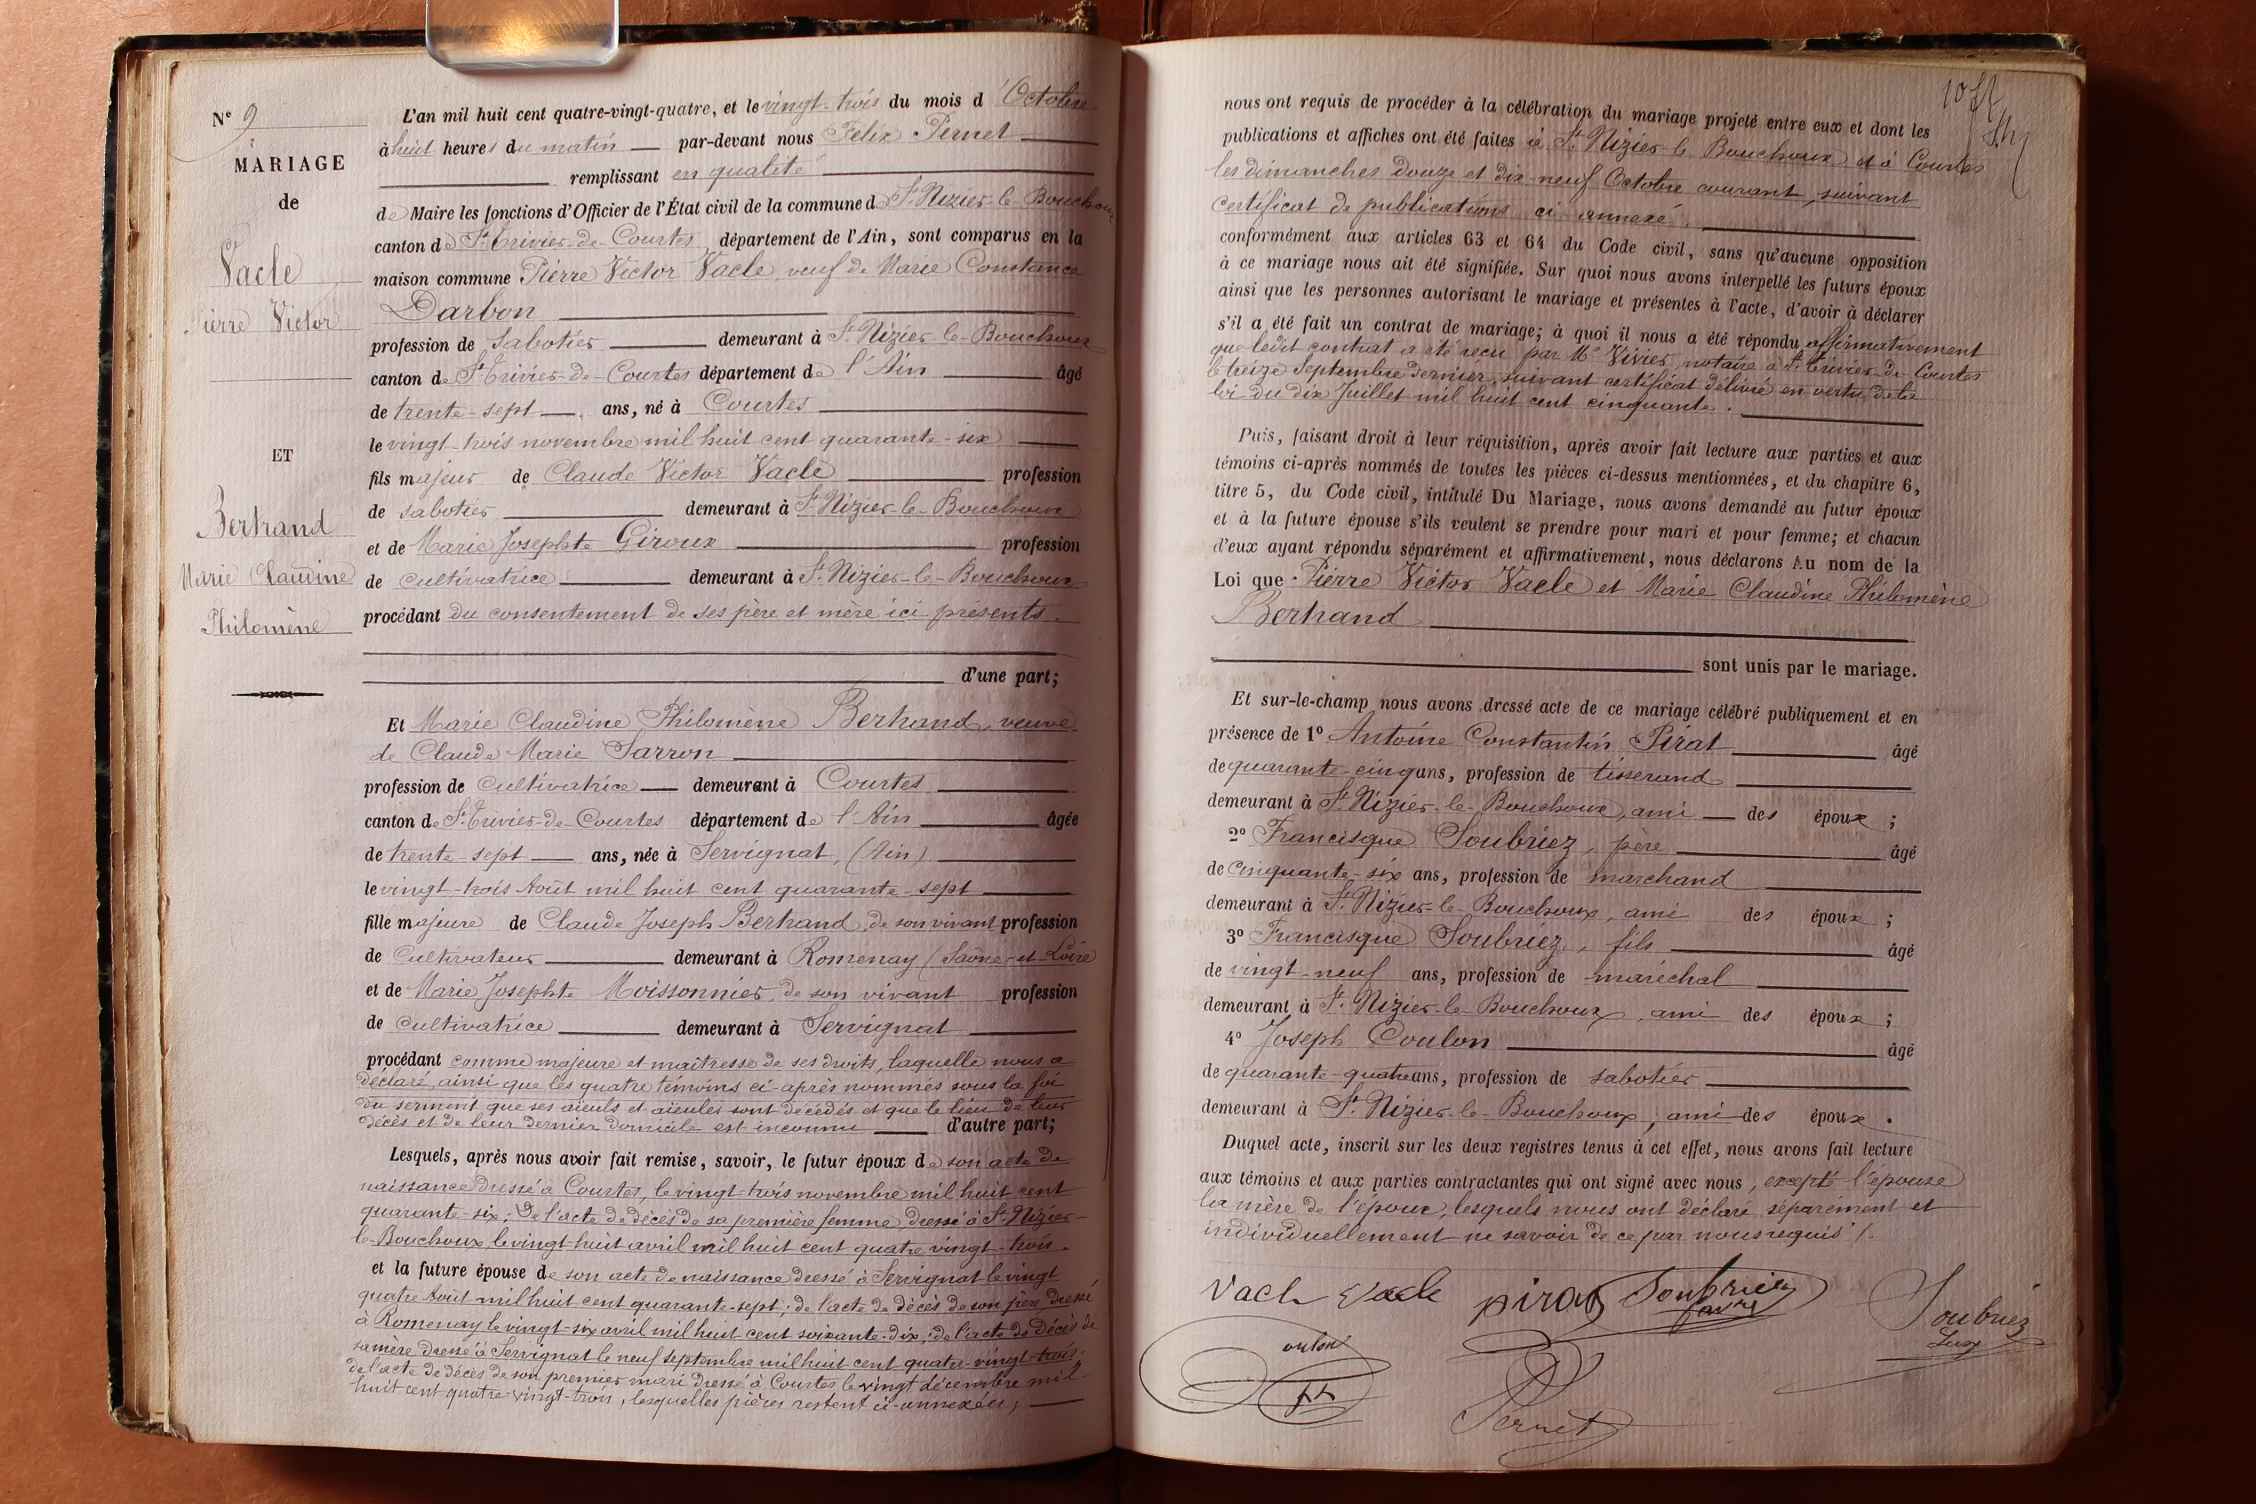 N° 9
MARIAGE
de
Vacle
Pierre Victor
ET
Bertrand
Marie Claudine
Philomène
L'an mil huit cent quatre-vingt-quatre, et le vingt-trois du mois d'Octobre
à huit heures du matin par-devant nous Félix Pernet
remplissant en qualité
de Maire les fonctions d'Officier de l'État civil de la commune de St Nizier-le-Bouchoux
canton de St Trivier-de-Courtes, département de l'Ain, sont comparus en la
maison commune Pierre Victor Vacle, veuf de Marie Constance
Darbon
profession de sabotier demeurant à St Nizier-le-Bouchoux
canton de St Trivier-de-Courtes département de l'Ain âgé
de trente-sept ans, né à Courtes
le vingt-trois novembre mil huit cent quarante-six
fils majeur de Claude Victor Vacle profession
de sabotier demeurant à St Nizier-le-Bouchoux
et de Marie Josephte Giroux profession
de cultivatrice demeurant à St Nizier-le-Bouchoux
procédant du consentement de ses père et mère ici présents.
d'une part;
Et Marie Claudine Philomène Bertrand, veuve
de Claude Marie Sarron
profession de cultivatrice demeurant à Courtes
canton de St Trivier-de-Courtes département de l'Ain âgée
de trente-sept ans, née à Servignat, (Ain)
le vingt-trois Août mil huit cent quarante-sept
fille majeure de Claude Joseph Bertrand, de son vivant profession
de cultivateur demeurant à Romenay (Saône-et-Loire
et de Marie Josephte Moissonnier, de son vivant profession
de cultivatrice demeurant à Servignat
procédant comme majeure et maîtresse de ses droits, laquelle nous a
déclaré, ainsi que les quatre témoins ci-après nommés sous la foi
du serment que ses aïeuls et aïeules sont décédés et que le lieu de leur
décès et de leur dernier domicile est inconnu d'autre part;
Lesquels, après nous avoir fait remise, savoir, le futur époux de son acte de
naissance dressé à Courtes, le vingt-trois novembre mil huit cent
quarante-six; De l'acte de décès de sa première femme dressé à St Nizier-
le-Bouchoux, le vingt-huit avril mil huit cent quatre vingt-trois.
et la future épouse de son acte de naissance dressé à Servignat le vingt
quatre Août mil huit cent quarante-sept; de l'acte de décès de son père dressé
à Romenay le vingt-six avril mil huit cent soixante-dix; de l'acte de décès de
sa mère dressé à Servignat le neuf septembre mil huit cent quatre-vingt-trois;
de l'acte de décès de son premier mari dressé à Courtes le vingt décembre mil-
huit cent quatre vingt-trois, lesquelles pièces restent ci-annexées;
nous ont requis de procéder à la célébration du mariage projeté entre eux et dont les
publications et affiches ont été faites à St Nizier-le Bouchoux et à Courtes
les dimanches douze et dix-neuf Octobre courant, suivant
certificat de publications ci annexé.
conformément aux articles 63 et 64 du Code civil, sans qu'aucune opposition
à ce mariage nous ait été signifiée. Sur quoi nous avons interpellé les futurs époux
ainsi que les personnes autorisant le mariage et présentes à l'acte, d'avoir à déclarer
s'il a été fait un contrat de mariage; à quoi il nous a été répondu affirmativement
que ledit contrat a été reçu par Me Vivier, notaire à St Trivier-de-Courtes
le treize Septembre dernier, suivant certificat délivré en vertu de la
loi du dix Juillet mil huit cent cinquante.
Puis, faisant droit à leur réquisition, après avoir fait lecture aux parties et aux
témoins ci-après nommés de toutes les pièces ci-dessus mentionnées, et du chapitre 6,
titre 5, du Code civil, intitulé Du Mariage, nous avons demandé au futur époux
et à la future épouse s'ils veulent se prendre pour mari et pour femme; et chacun
d'eux ayant répondu séparément et affirmativement, nous déclarons Au nom de la
Loi que Pierre Victor Vacle et Marie Claudine Philomène
Bertrand
sont unis par le mariage.
Et sur-le-champ nous avons dressé acte de ce mariage célébré publiquement et en
présence de 1° Antoine Constantin Pirat âgé
de quarante-cinq ans, profession de tisserand
demeurant à St Nizier-le-Bouchoux, ami des époux;
2° Francisque Soubriez, père âgé
de cinquante-six ans, profession de marchand
demeurant à St Nizier-le-Bouchoux, ami des époux;
3° Francisque Soubriez, fils âgé
de vingt-neuf ans, profession de maréchal
demeurant à St Nizier-le-Bouchoux, ami des époux;
4° Joseph Coulon âgé
de quarante-quatre ans, profession de sabotier
demeurant à St Nizier-le-Bouchoux, ami des époux.
Duquel acte, inscrit sur les deux registres tenus à cet effet, nous avons fait lecture
aux témoins et aux parties contractantes qui ont signé avec nous, excepté l'épouse
la mère de l'époux, lesquels nous ont déclaré séparément et
individuellement ne savoir de ce par nous requis /.
Vacle Vacle pirat Soubriez
Soubriez
Pernet